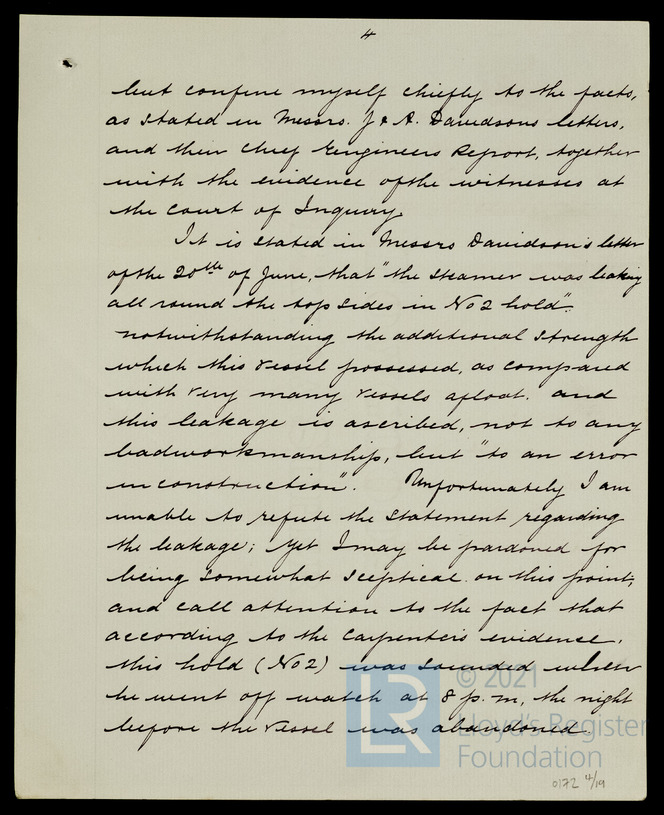 4
but confine myself chiefly to the facts,
as stated in Messrs. J & A. Davidsons letters,
and their Chief Engineers Report, together
with the evidence of the witnesses at
the Court of Inquiry.
It is stated in Messrs Davidson's letter
of the 20th of June, that "the steamer was leaking
all round the top sides in No 2 hold".
notwithstanding the additional strength
which this vessel possessed, as compared
with very many vessels afloat. and
this leakage is ascribed, not to any
bad workmanship, but "to an error
in construction". Unfortunately I am
unable to refute the statement regarding
the leakage; yet I may be pardoned for
being somewhat sceptical on this point,
and call attention to the fact that
according to the Carpenter's evidence,
this hold (No 2) was sounded when
he went off watch at 8 p.m, the night
before the vessel was abandoned.
© 2021
LR
Lloyd's Register
Foundation
0172 4/19